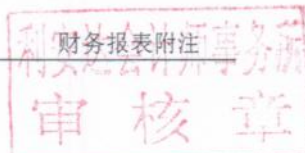 财务报表附注
利安达会计师事务所
审核章